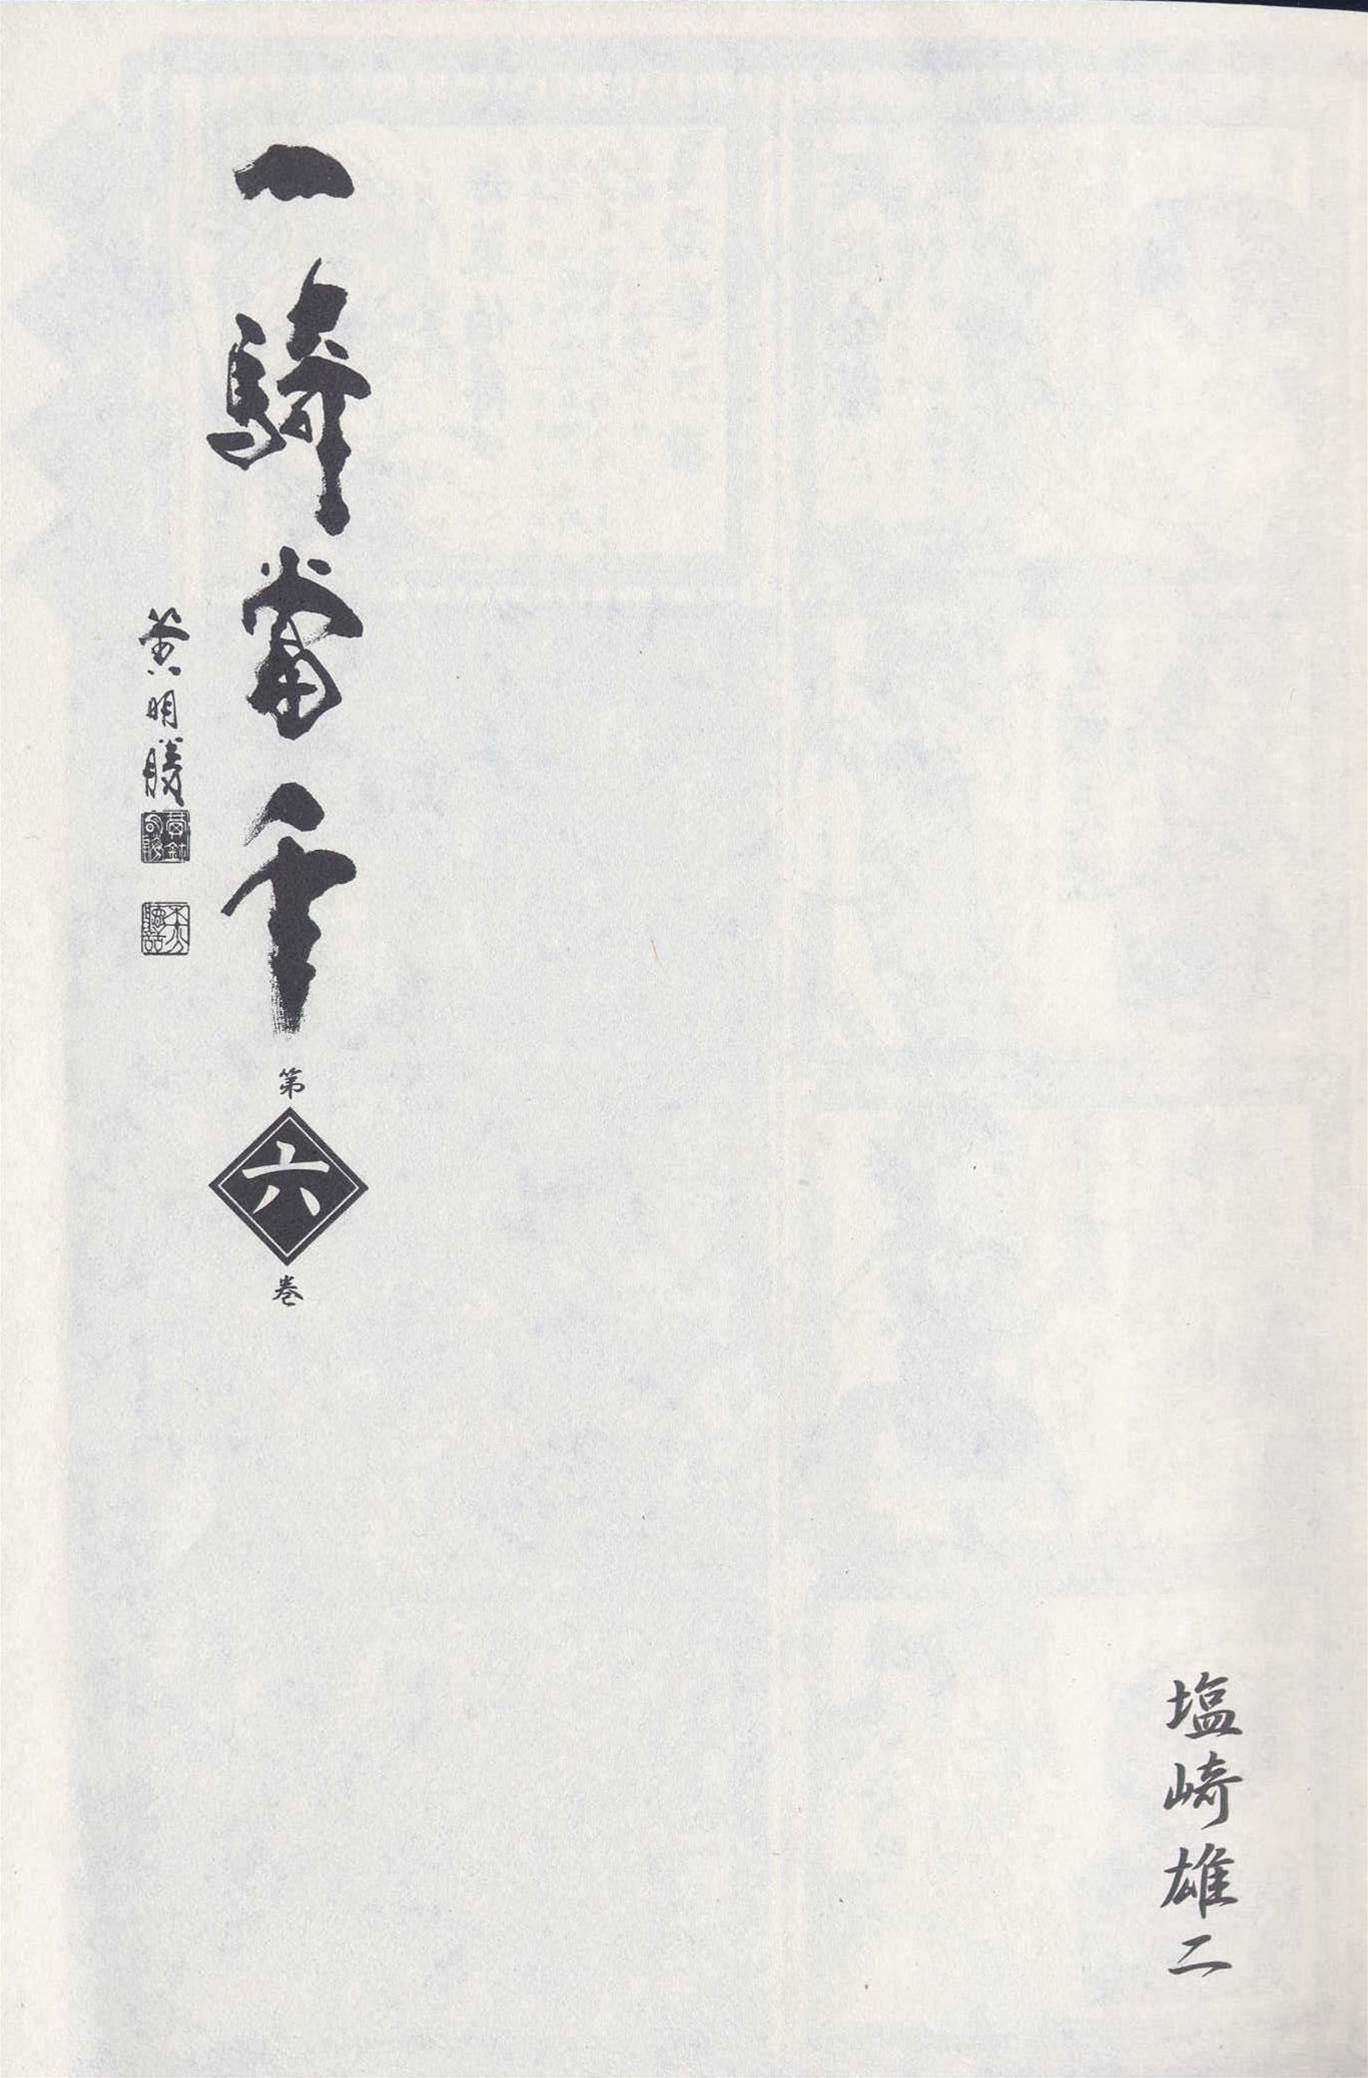 塩崎雄二
一騎當千
第
六
巻
黄明勝